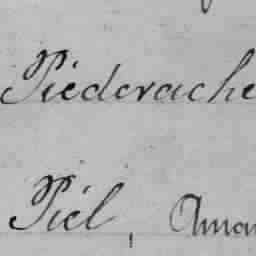 Piederache
Piel, Aman